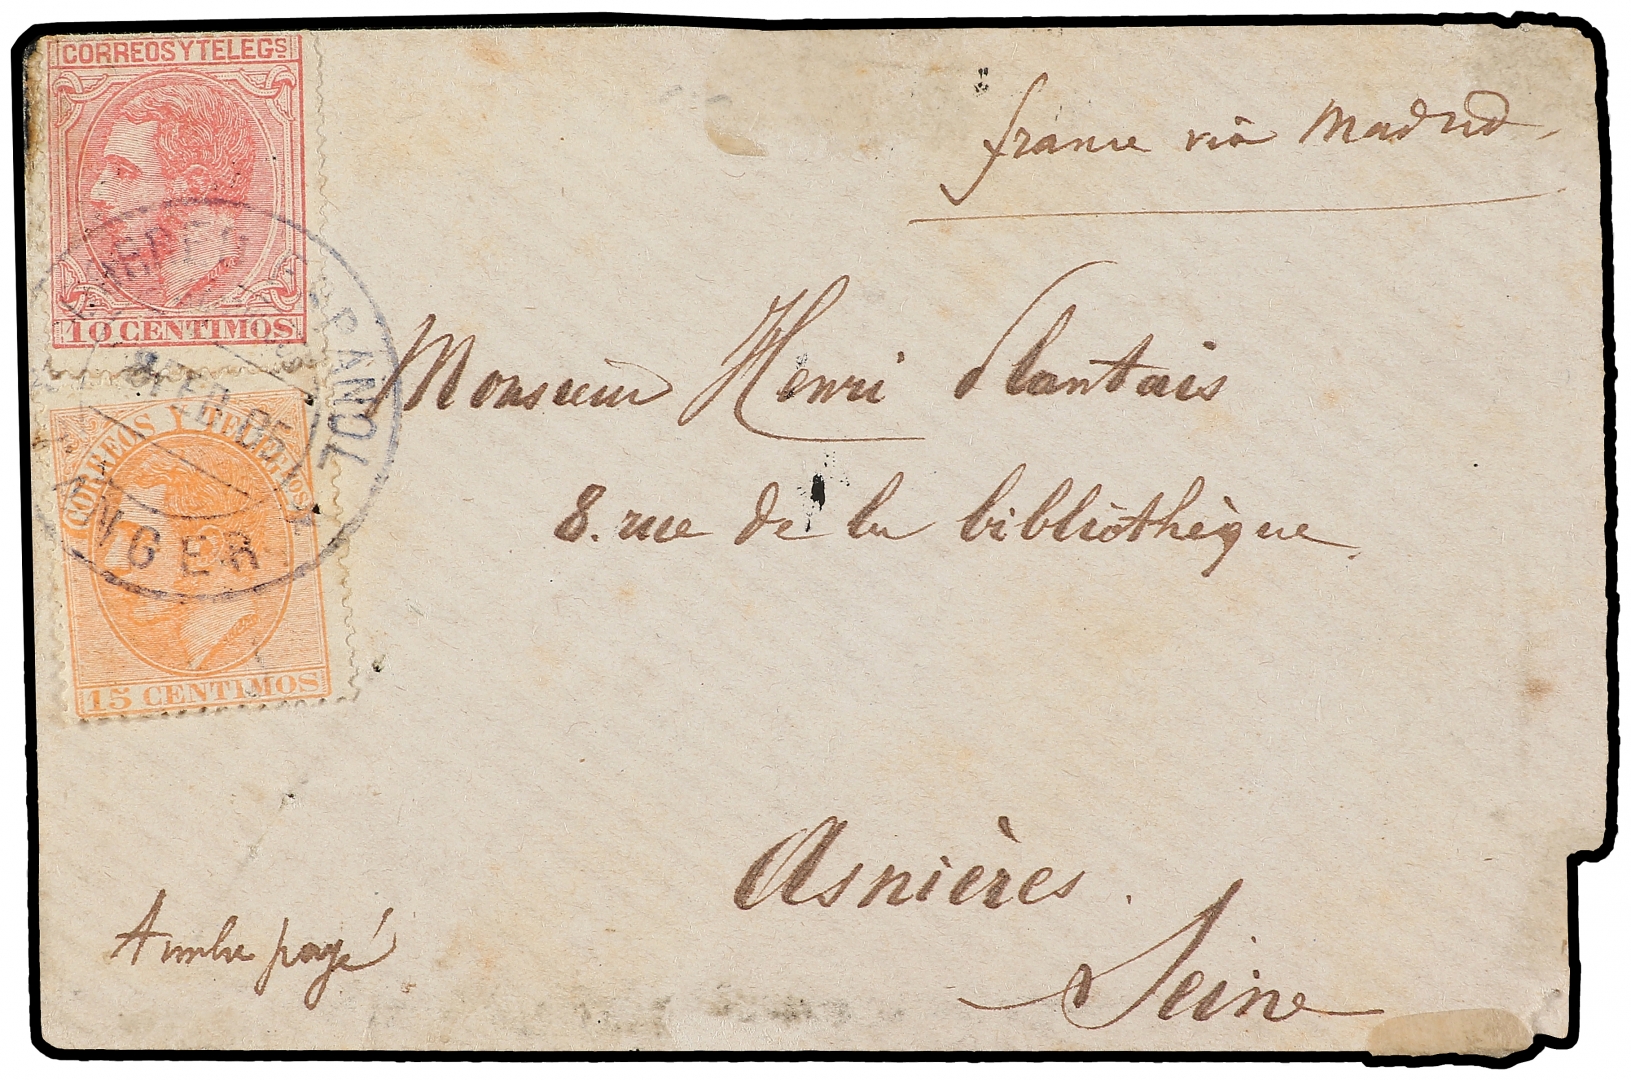 CORREOS Y TELEGS
10 CENTIMOS
CORREOS Y TELEGROS
15 CENTIMOS
ESPAÑOL
FEB 85
TANGER
france viâ Madrid
Monsieur Henri Plantais
8. rue de la bibliothèque
Asnières.
Seine
Timbre payé